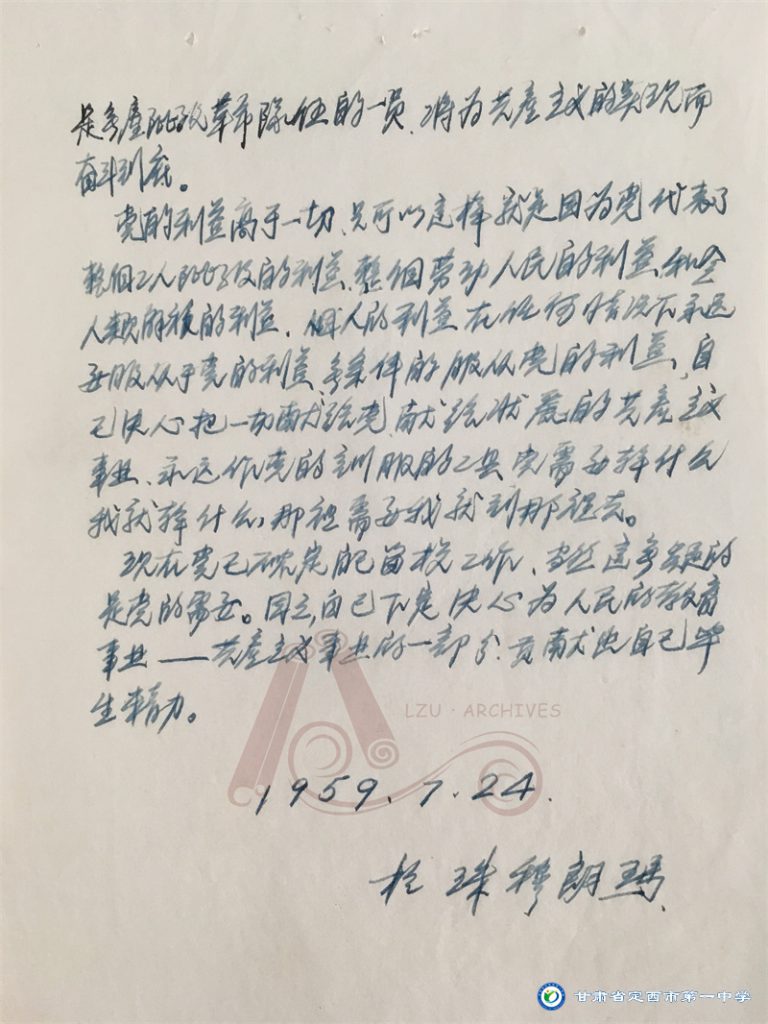 是无产阶级革命队伍的一员，将为共產主义的实现而
奋斗到底。
党的利益高于一切，只可以这样就是因为党代表了
整個工人阶级的利益、整個劳动人民的利益和全
人类解放的利益，個人的利益在任何情况下永远
要服从于党的利益，無条件的服从党的利益，自
己决心把一切献给党，献给壮丽的共產主义
事业，永远作党的驯服的工具，党需要幹什么
我就幹什么，那里需要我就到那里去。
现在党已确定自己留校工作，当然这無疑的
是党的需要。因之，自己下定决心为人民的教育
事业——共產主义事业的一部分，贡献出自己毕
生精力。
LZU · ARCHIVES
1959.7.24.
于 珠穆朗玛
甘肃省定西市第一中学